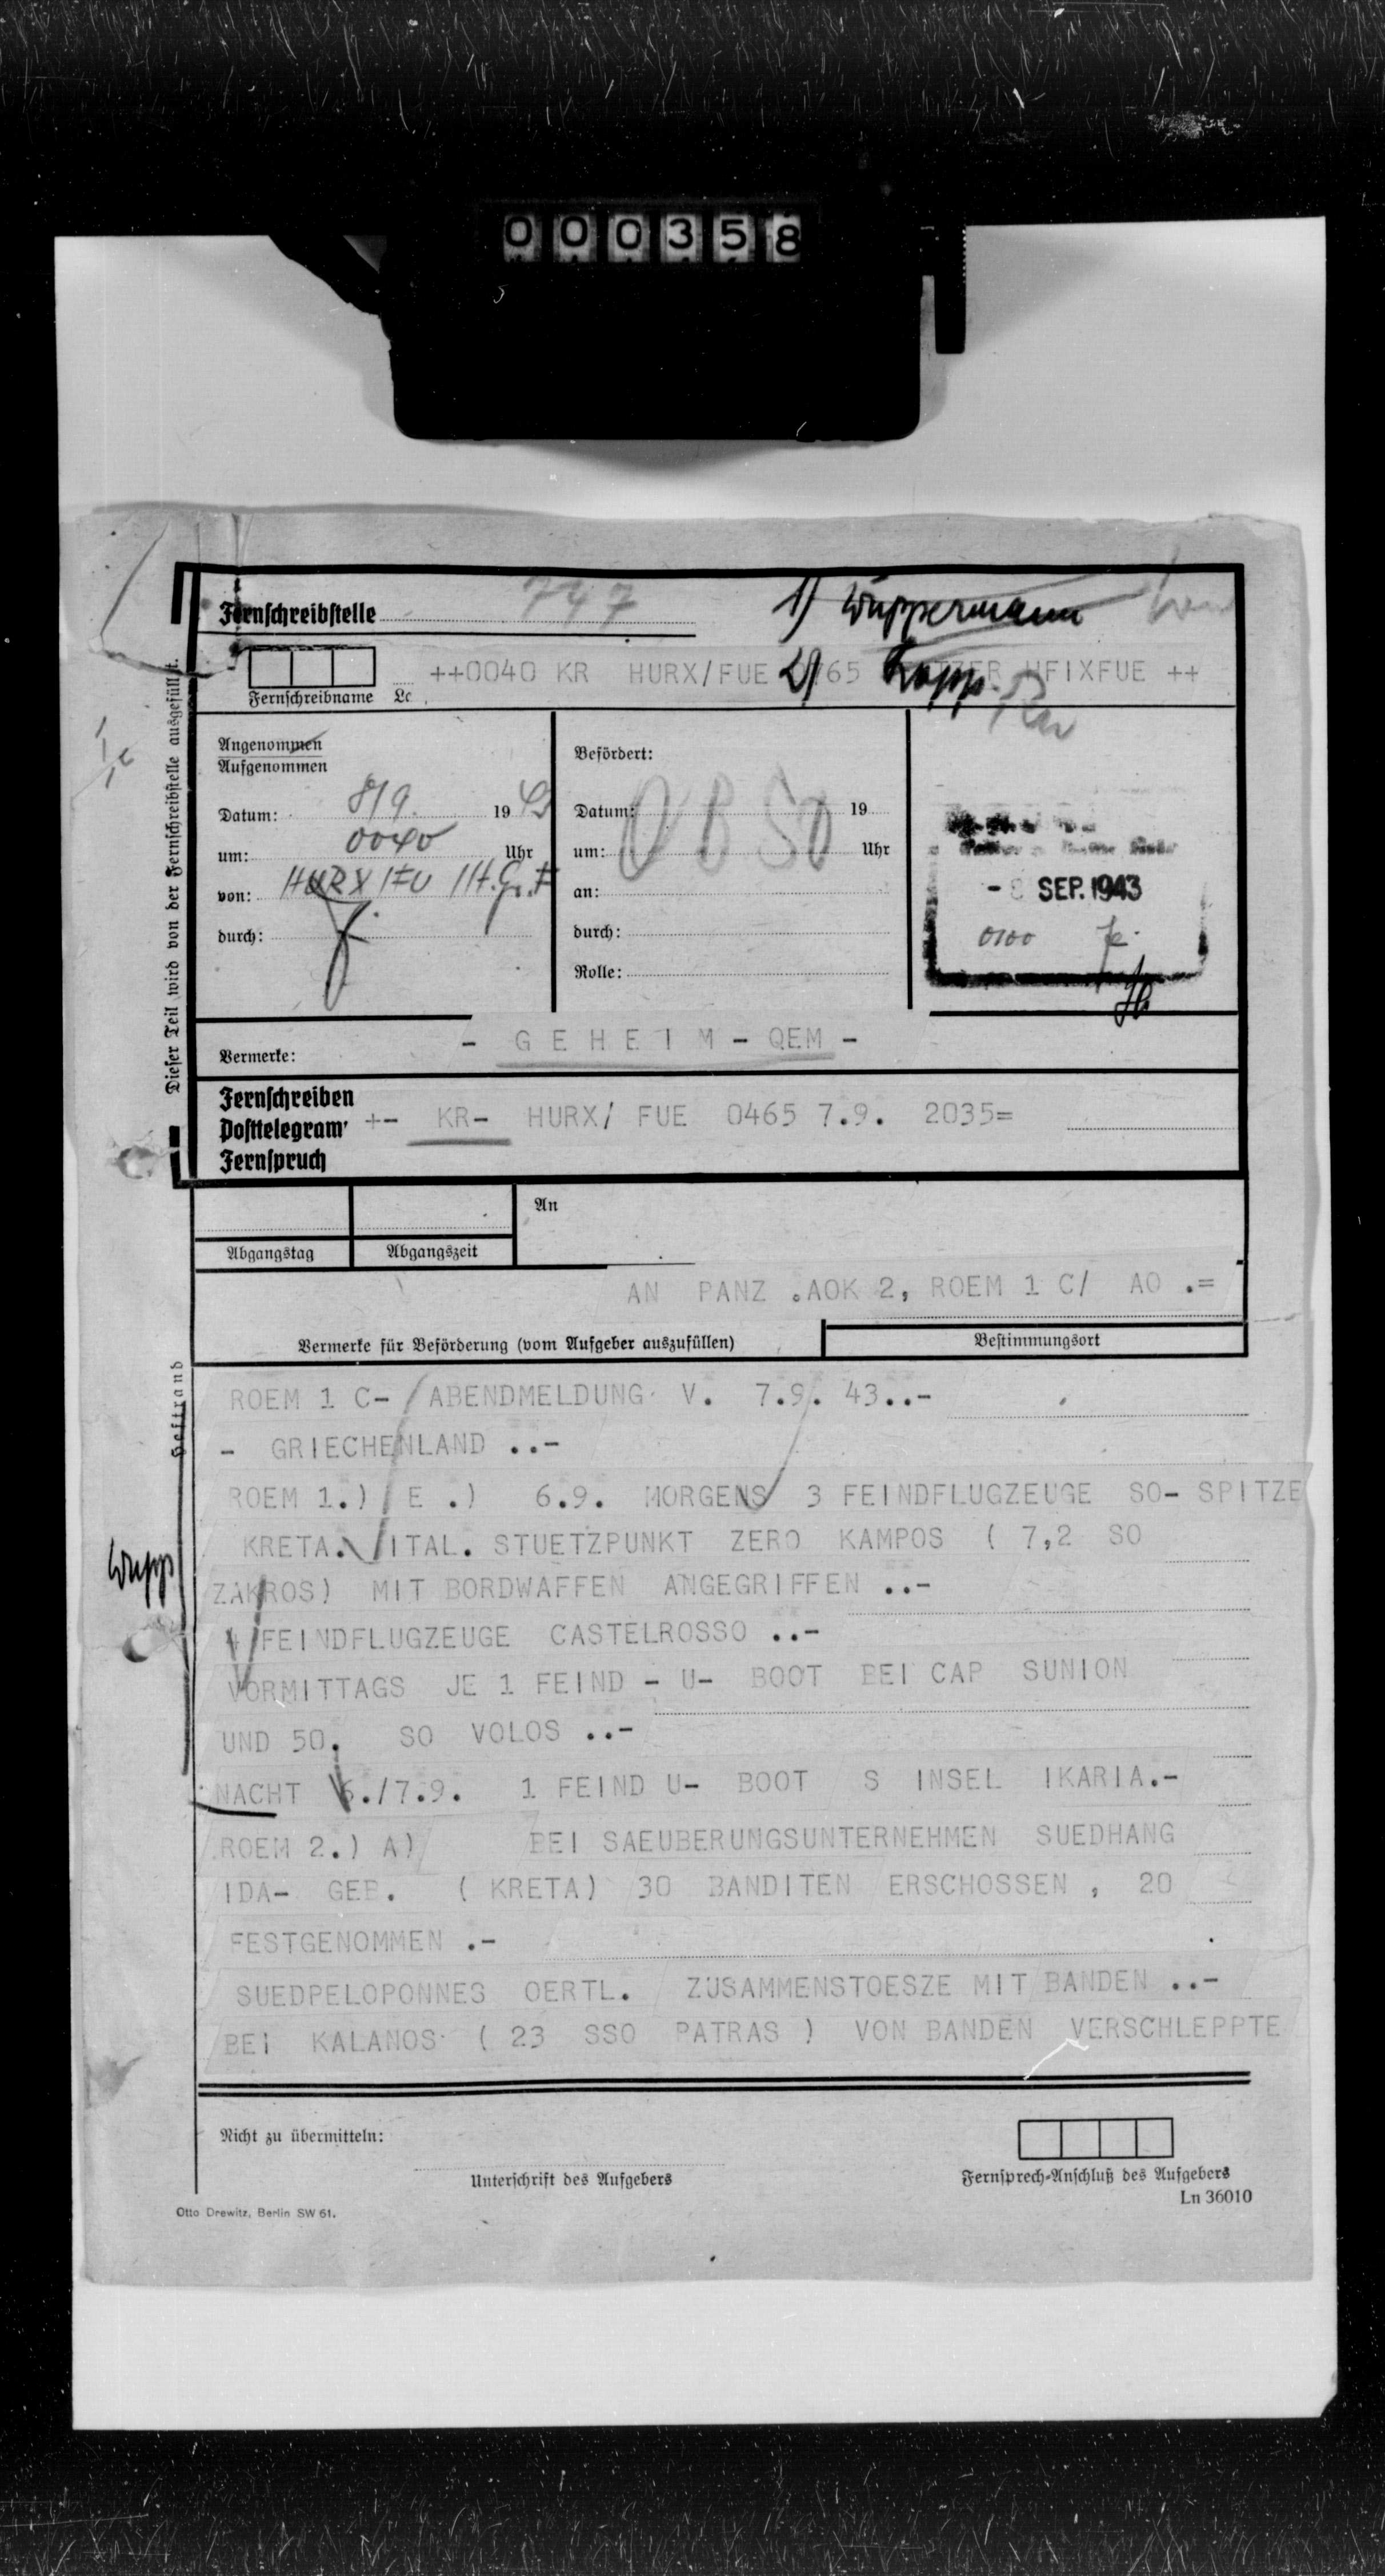 000358
Fernschreibstelle 747 1) Wuppermann
++0040 KR HURX/FUE 2) Kopp HFIXFUE ++
Fernschreibname
Angenommen
Aufgenommen
Datum: 8/9. 19 43
um: 0040 Uhr
von: HURX/FU
durch:
Befördert:
Datum: 19
um: Uhr
an:
durch:
Rolle:
OB SO
SEP. 1943
0100
Dieser Teil wird von der Fernschreibstelle ausgefüllt.
Vermerke: - G E H E I M - QEM -
Fernschreiben
Posttelegram
Fernspruch
+- KR- HURX/ FUE 0465 7.9. 2035=
An
Abgangstag Abgangszeit
AN PANZ .AOK 2, ROEM 1 C/ AO .=
Vermerke für Beförderung (vom Aufgeber auszufüllen) Bestimmungsort
ROEM 1 C- ABENDMELDUNG V. 7.9. 43..-
- GRIECHENLAND ..-
ROEM 1.) E .) 6.9. MORGENS 3 FEINDFLUGZEUGE SO- SPITZE
KRETA. ITAL. STUETZPUNKT ZERO KAMPOS ( 7,2 SO
Wupp
ZAKROS) MIT BORDWAFFEN ANGEGRIFFEN ..-
4 FEINDFLUGZEUGE CASTELROSSO ..-
VORMITTAGS JE 1 FEIND - U- BOOT BEI CAP SUNION
UND 50. SO VOLOS ..-
NACHT 6./7.9. 1 FEIND U- BOOT S INSEL IKARIA.-
ROEM 2.) A) BEI SAEUBERUNGSUNTERNEHMEN SUEDHANG
IDA- GEB. ( KRETA) 30 BANDITEN ERSCHOSSEN , 20
FESTGENOMMEN .-
SUEDPELOPONNES OERTL. ZUSAMMENSTOESZE MIT BANDEN ..-
BEI KALANOS ( 23 SSO PATRAS ) VON BANDEN VERSCHLEPPTE
Nicht zu übermitteln:
Unterschrift des Aufgebers
Fernsprech-Anschluß des Aufgebers
Ln 36010
Otto Drewitz, Berlin SW 61.